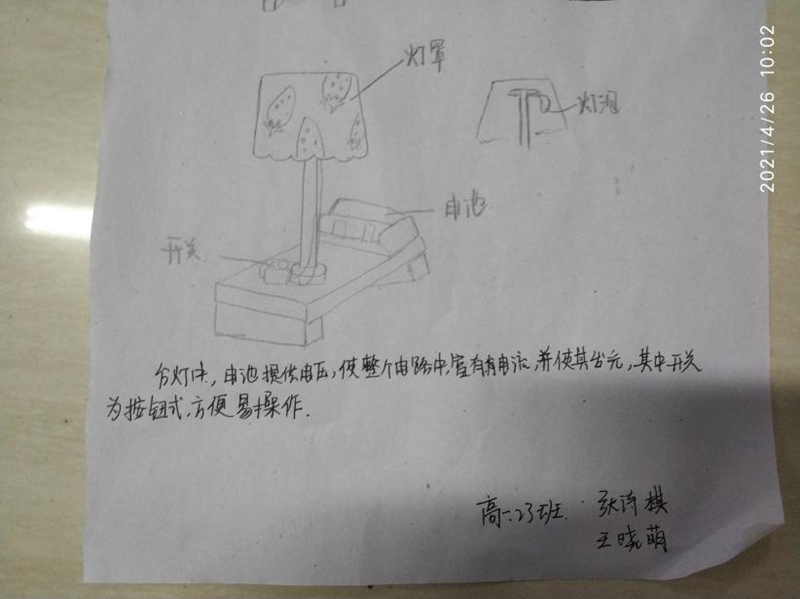 灯罩
灯泡
电池
开关
台灯中，电池提供电压，使整个电路中富有电流，并使其发光，其中开关
为按钮式，方便易操作．
高一.23班． 张诗棋
王晓萌
2021/4/26 10:02